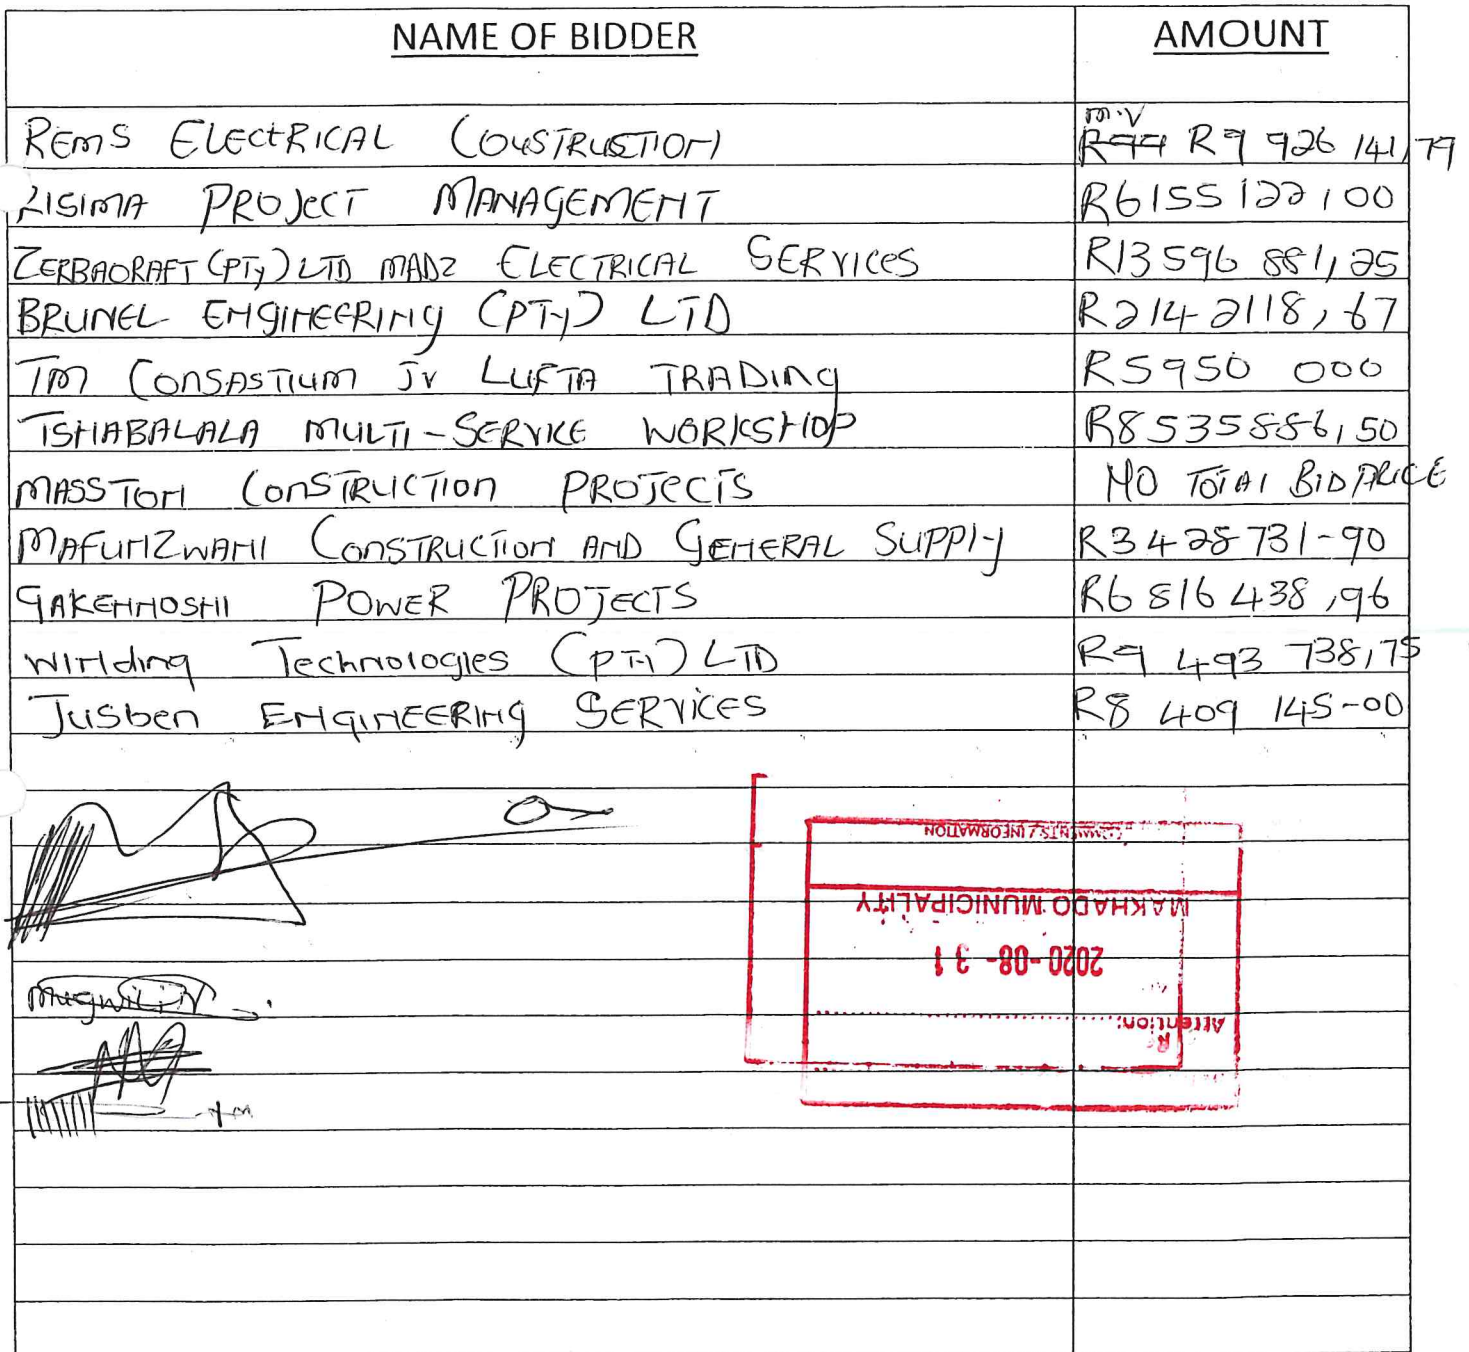 NAME OF BIDDER AMOUNT
m.v
REMS ELECTRICAL CONSTRUCTION R99 R9 926 141,79
LISIMA PROJECT MANAGEMENT R6155 122,00
ZERBAORAFT (PTY) LTD MADZ ELECTRICAL SERVICES R13 596 881,25
BRUNEL ENGINEERING (PTY) LTD R214 2118,67
TM CONSASTIUM JV LUFTA TRADING R5950 000
TSHABALALA MULTI-SERVICE WORKSHOP R8 535 886,50
MASSTON CONSTRUCTION PROJECTS NO TOTAL BID PRICE
MAFUNZWANI CONSTRUCTION AND GENERAL SUPPLY R3 428 731-90
GAKENNOSHI POWER PROJECTS R6 816 438,96
Winding Technologies (PTY) LTD R9 493 738,75
Jusben ENGINEERING SERVICES R8 409 145-00
COMMENTS / INFORMATION
MAKHADO MUNICIPALITY
2020-08-31
Attention: